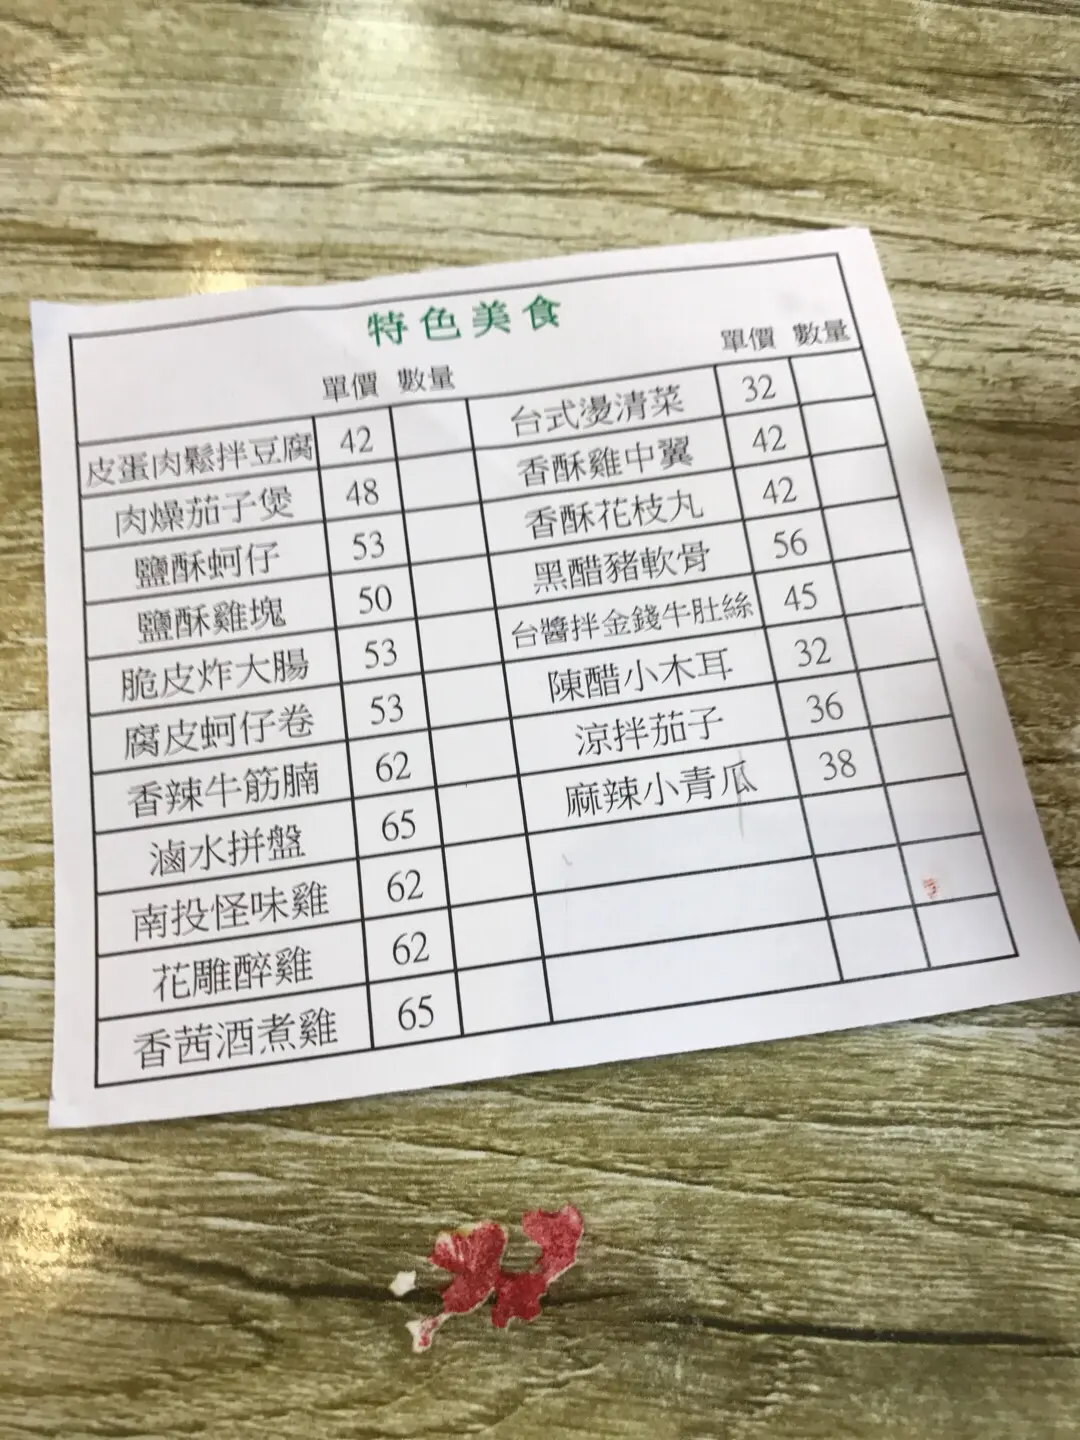 特色美食
單價 數量
皮蛋肉鬆拌豆腐 42
肉燥茄子煲 48
鹽酥蚵仔 53
鹽酥雞塊 50
脆皮炸大腸 53
腐皮蚵仔卷 53
香辣牛筋腩 62
滷水拼盤 65
南投怪味雞 62
花雕醉雞 62
香茜酒煮雞 65
單價 數量
台式燙清菜 32
香酥雞中翼 42
香酥花枝丸 42
黑醋豬軟骨 56
台醬拌金錢牛肚絲 45
陳醋小木耳 32
涼拌茄子 36
麻辣小青瓜 38